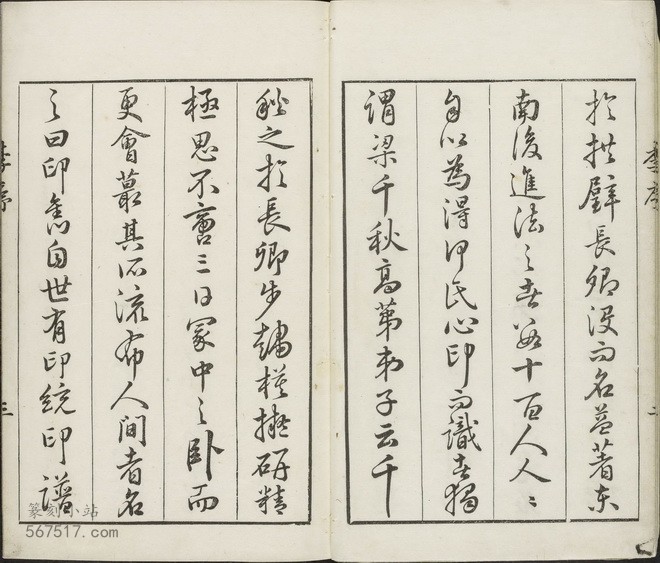 於拱璧長卿沒而名益著東
南後進法之者數十百人人〻
自以為得何氏心印而識者獨
謂梁千秋高第弟子云千
秋之於長卿步驟模擬研精
極思不啻三日冢中之臥而
更會蕞其所流布人間者名
之曰印雋自世有印統印譜
三
篆刻小站
567517.com